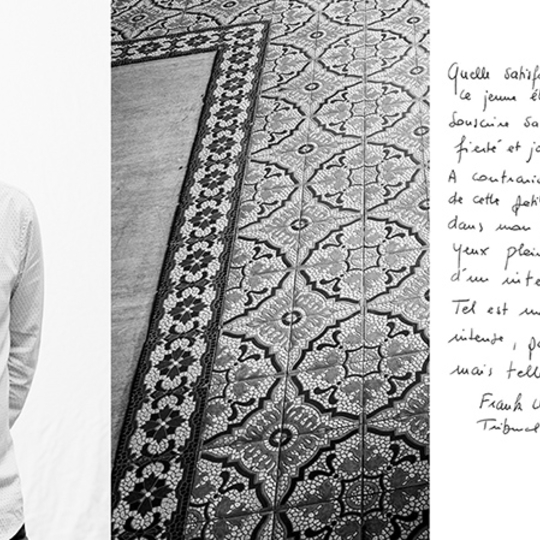 Quelle satisf
ce jeune é
souscrire sa
fierté et jo
A contrario
de cette peti
dans mon
yeux plein
d'un inte
Tel est m
intense, p
mais tell
Frank
Tribunal